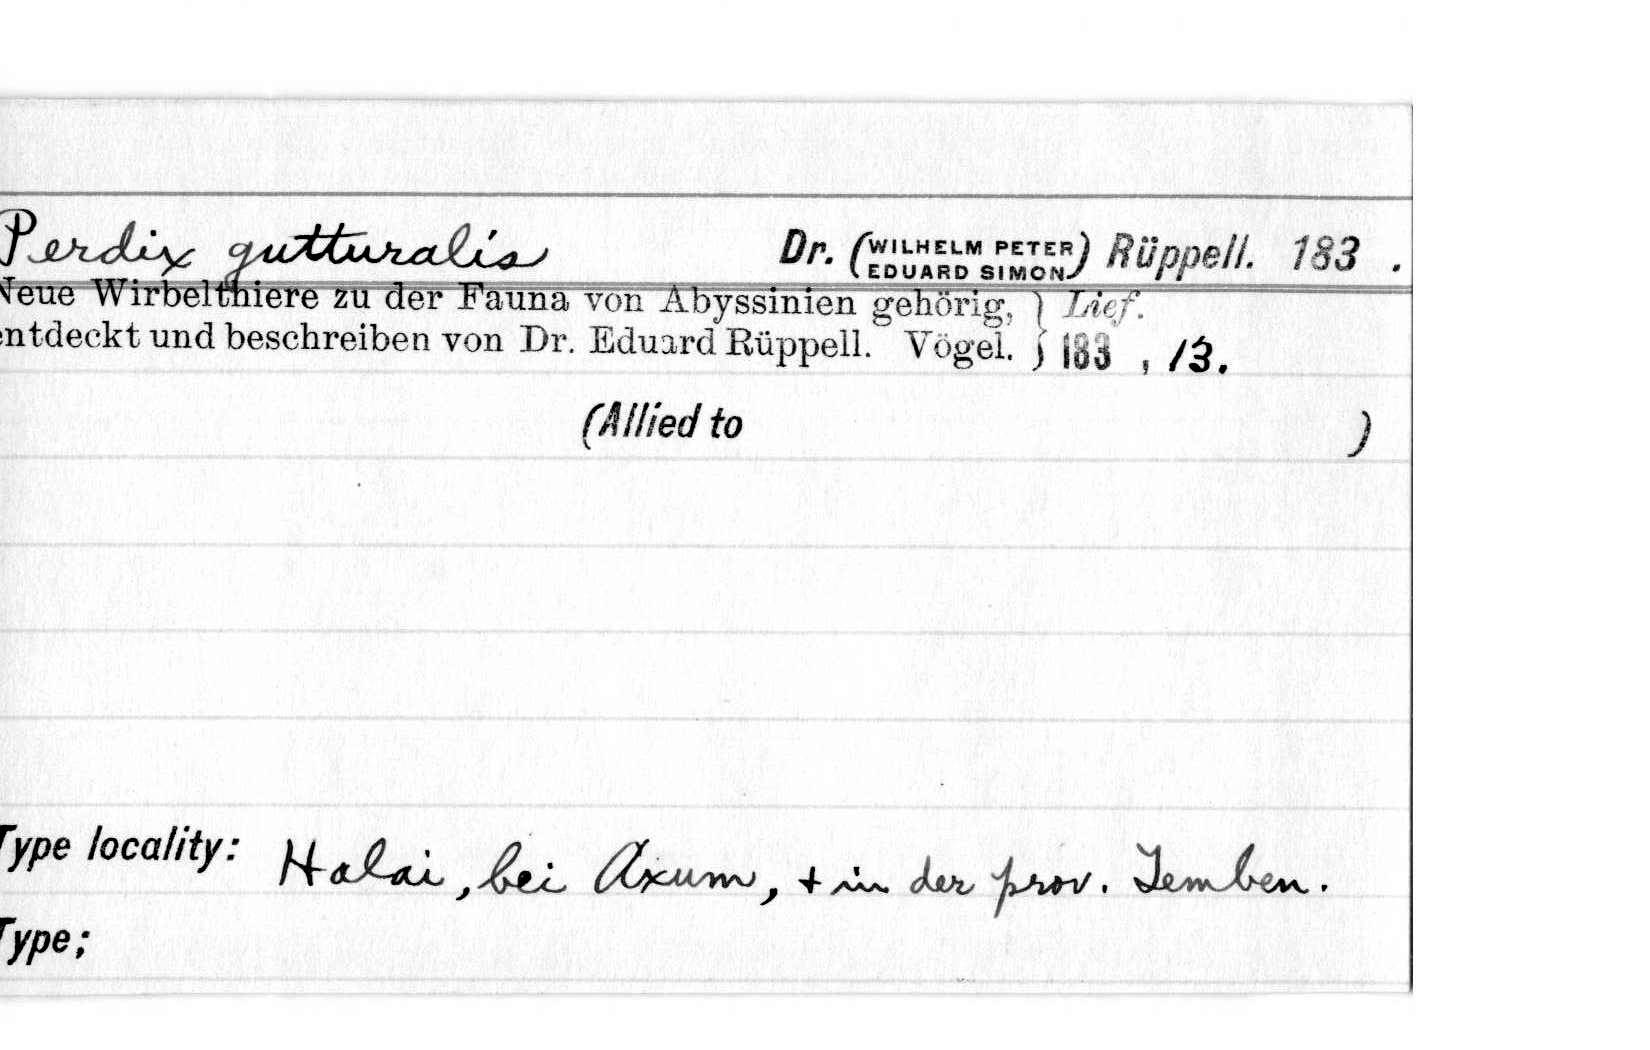 Perdix gutturalis Dr. (WILHELM PETER EDUARD SIMON) Rüppell. 183 .
Neue Wirbelthiere zu der Fauna von Abyssinien gehörig, } Lief.
entdeckt und beschreiben von Dr. Eduard Rüppell. Vögel. } 183 , 13.
(Allied to )
Type locality: Halai, bei Axum, + in der prov. Temben.
Type;